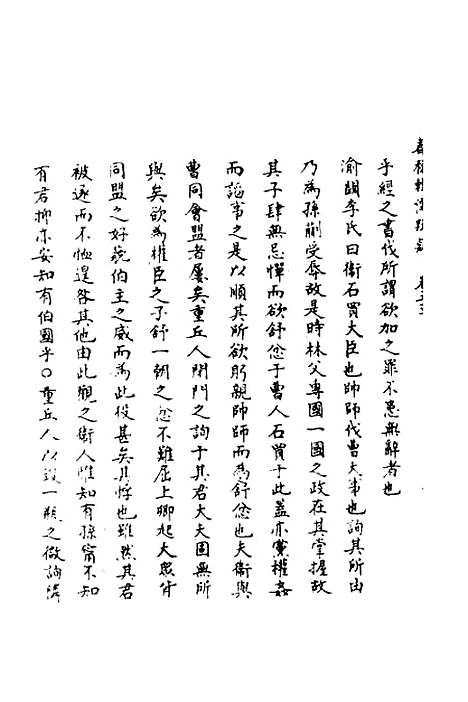 春秋輯傳辨疑 卷五十三
乎經之書伐所謂欲加之罪不患無辭者也
渝關李氏曰衞石買大臣也帥師伐曹大事也詢其所由
乃為孫蒯受辱故是時林父專國一國之政在其掌握故
其子肆無忌憚而欲舒忿于曹人石買于此蓋亦黨權姦
而諂事之是以順其所欲躬親帥師而為舒忿也夫衞與
曹同會盟者屢矣重丘人閉門之詢于其君大夫固無所
與矣欲為權臣之子舒一朝之忿不難屈上卿起大衆背
同盟之好藐伯主之威而為此役甚矣其悖也雖然其君
被逐而不恤遑咎其他由此觀之衞人惟知有孫甯不知
有君抑亦安知有伯國乎○重丘人以毀一瓶之微詢隣